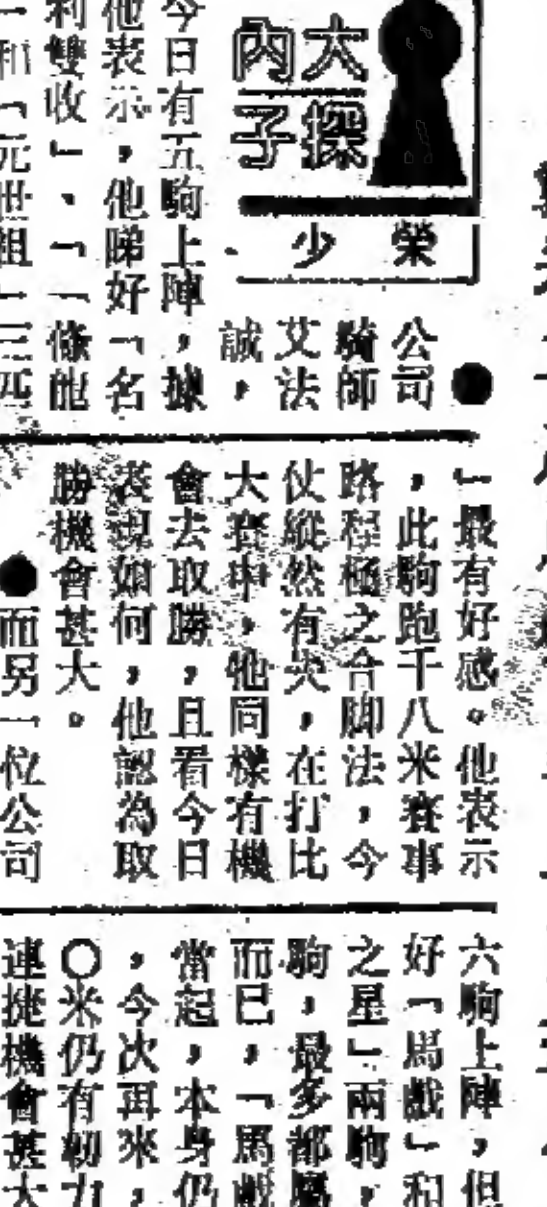 大內
探子
榮少
●
公司
騎師
艾法
誠，
今日有五駒上陣，據
他表示，他睇好「名
利雙收」、「一條龍
」和「元世祖」三匹
」最有好感。他表示
，此駒跑千八米賽事
路程極之合脚法，今
仗縱然有失，在打比
大賽中，牠同樣有機
會去取勝，且看今日
表現如何，他認為取
勝機會甚大。
●而另一位公司
六駒上陣，但
好「馬戲」和
之星」兩駒，
駒，最多都屬
而已，「馬戲
當起，本身仍
，今次再來，
〇米仍有韌力
連捷機會甚大